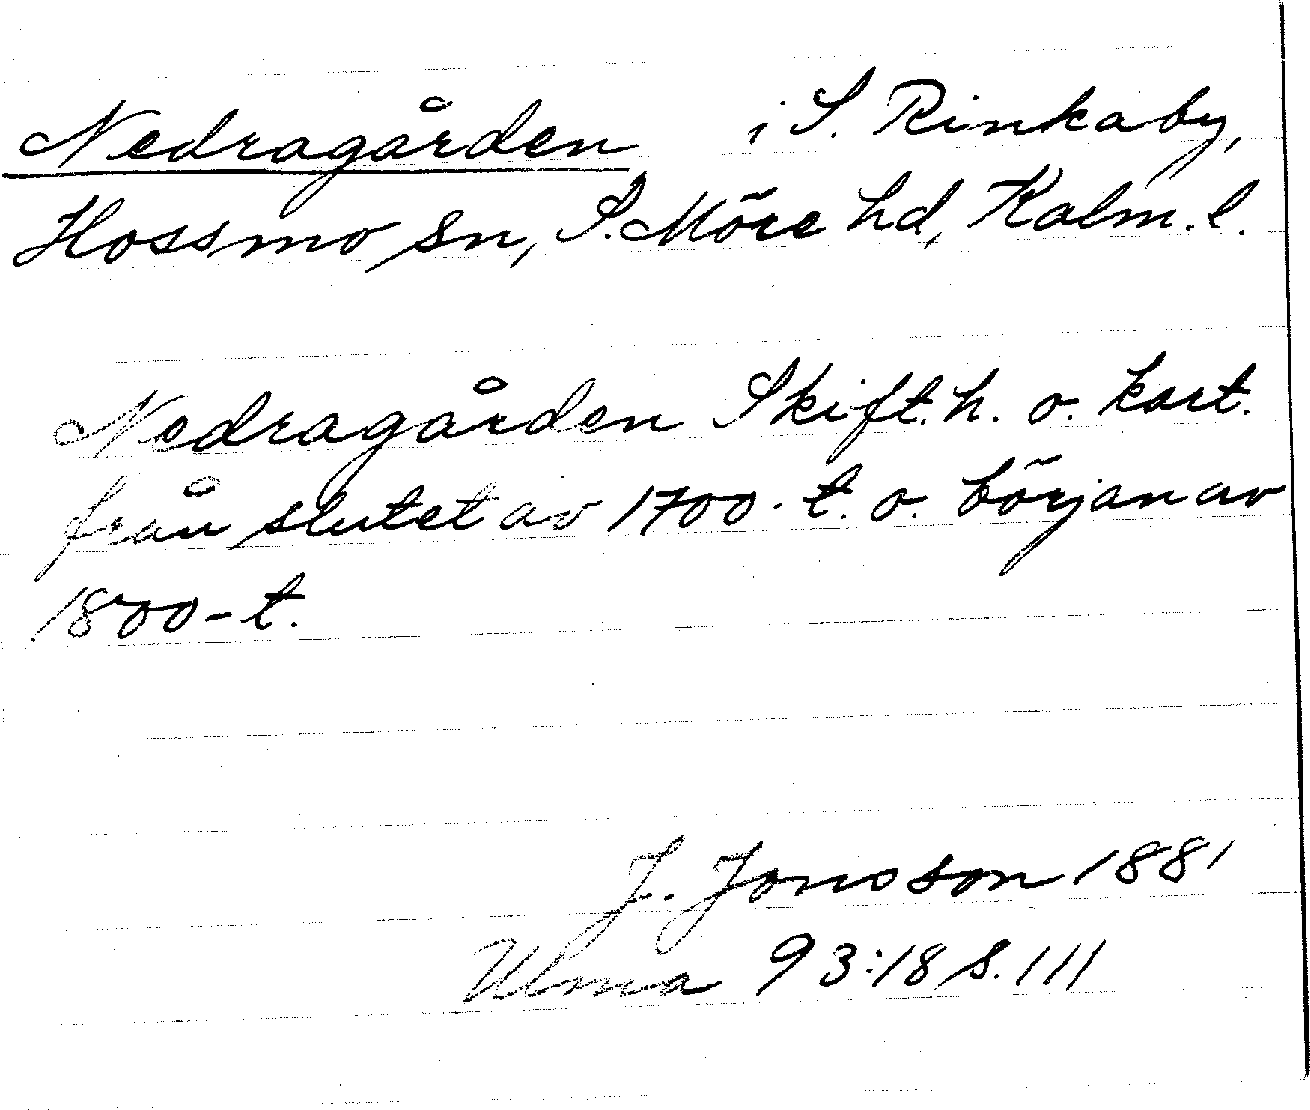 Nedragården i S. Rinkaby,
Hossmo sn, S. Möre hd, Kalm. l.
Nedragården Skift. h. o. kart.
från slutet av 1700-t. o. början av
1800-t.
J. Jonsson 1881
Ulma 93:18 s. 111